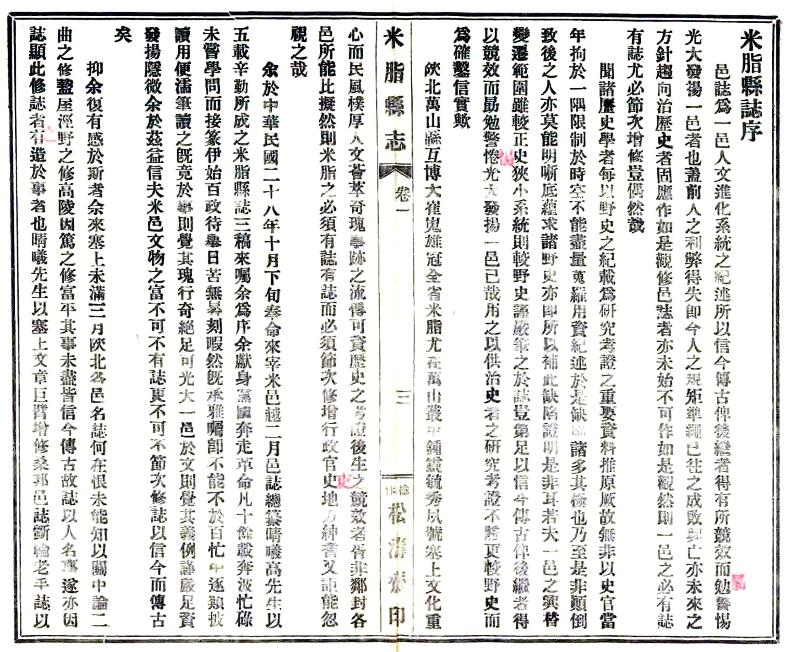 米脂縣誌序
邑誌爲一邑人文進化系統之紀述所以信今傳古俾後繼者得有所競效而勉警惕
光大發揚一邑者也蓋前人之利弊得失即今人之規矩準繩已往之成敗興亡亦未來之
方針趨向治歷史者固應作如是觀修邑誌者亦未始不可作如是觀然則一邑之必有誌
有誌尤必節次增修豈偶然哉
聞諸歷史學者每以野史之紀載爲研究考證之重要資料推原厥故無非以史官當
年拘於一隅限制於時空不能盡量蒐羅用資紀述於是缺 諸多其極也乃至是非顛倒
致後之人亦莫能明晰底蘊求諸野史亦即所以補此缺陷證明是非耳若夫一邑之興替
變遷範圍雖較正史狹小系統則較野史謹嚴筆之於誌豈第足以信今傳古俾後繼者得
以競效而勗勉警惕光大發揚一邑已哉用之以供治史者之研究考證不將更較野史而
爲確鑿信實歟
陝北萬山緜互博大崔嵬雄冠全省米脂尤在萬山叢中鍾靈毓秀夙號塞上文化重
米脂縣志
卷一
三
榆林
松濤齋印
心而民風樸厚人文薈萃奇瑰事跡之流傳可資歷史之考證後生之競效者皆非鄰封各
邑所能比擬然則米脂之必須有誌有誌而必須節次修增行政官吏地方紳耆又詎能忽
視之哉
余於中華民國二十八年十月下旬奉命來宰米邑越二月邑誌總纂晴曦高先生以
五載辛勤所成之米脂縣誌三稿來囑余爲序余獻身黨國奔走革命凡十餘載奔波忙碌
未嘗學問而接篆伊始百政待舉日苦無晷刻暇然旣承雅囑卽不能不於百忙中逐類披
讀用便濡筆讀之旣竟於事則覺其瑰行奇絕足可光大一邑於文則覺其義例謹嚴足資
發揚隱微余於茲益信夫米邑文物之富不可不有誌更不可不節次修誌以信今而傳古
矣
抑余復有感於斯者余來塞上未滿三月陝北各邑名誌何在恨未能知以關中論二
曲之修盩厔涇野之修高陵因篤之修富平其事未盡皆信今傳古故誌以人名傳遂亦因
誌顯此修誌者有造於事者也晴曦先生以塞上文章巨臂增修桑邦邑誌斲輪老手誌以